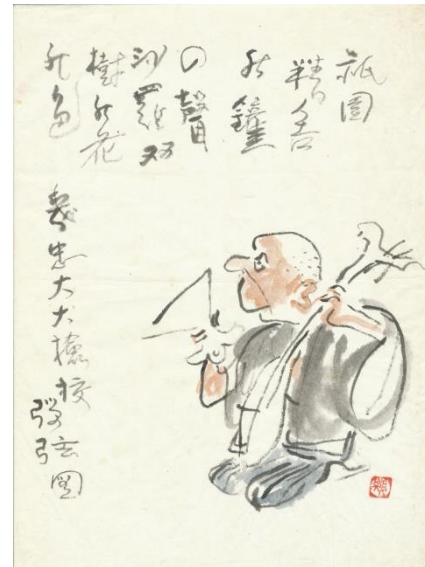 祇園
精舎
の鐘
の聲
沙羅双
樹の花
の色
忠大犬検校
弾弦図